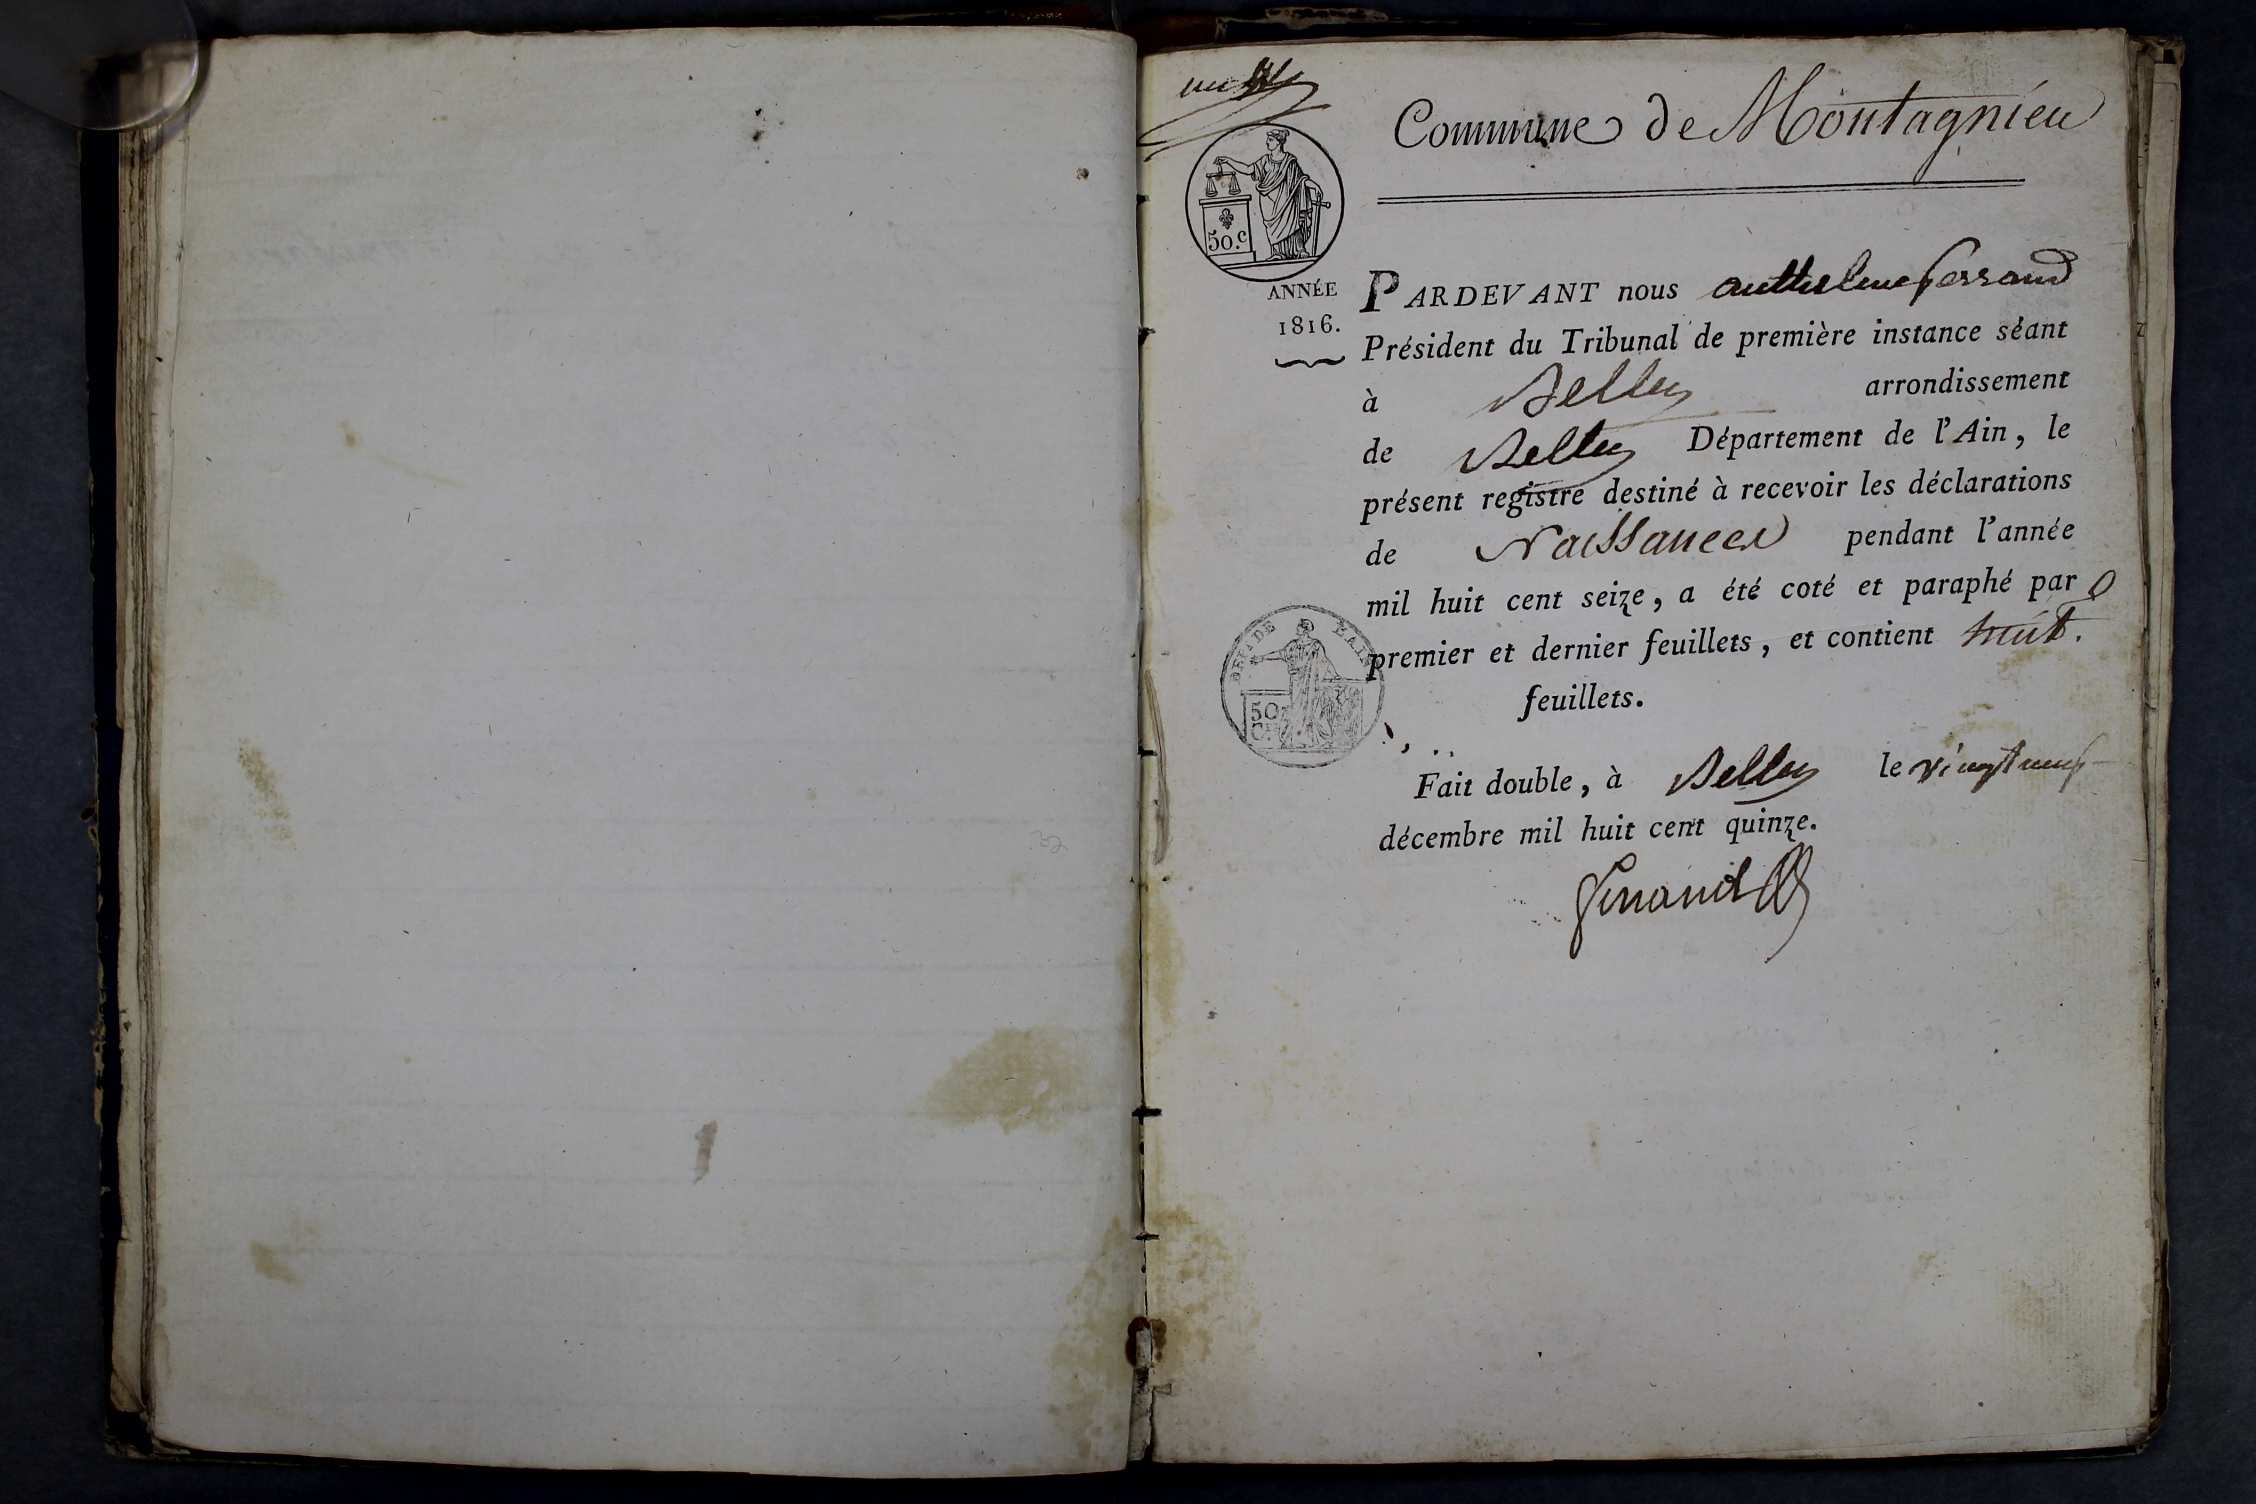 Commune de Montagnieu
50.c
ANNÉE
1816.
PARDEVANT nous anthelme ferrand
Président du Tribunal de première instance séant
à Belley arrondissement
de Belley Département de l'Ain, le
présent registre destiné à recevoir les déclarations
de Naissances pendant l'année
mil huit cent seize, a été coté et paraphé par
premier et dernier feuillets, et contient huit.
feuillets.
DEP. DE L'AIN
50
C.
Fait double, à Belley le vingt neuf
décembre mil huit cent quinze.
ferrand